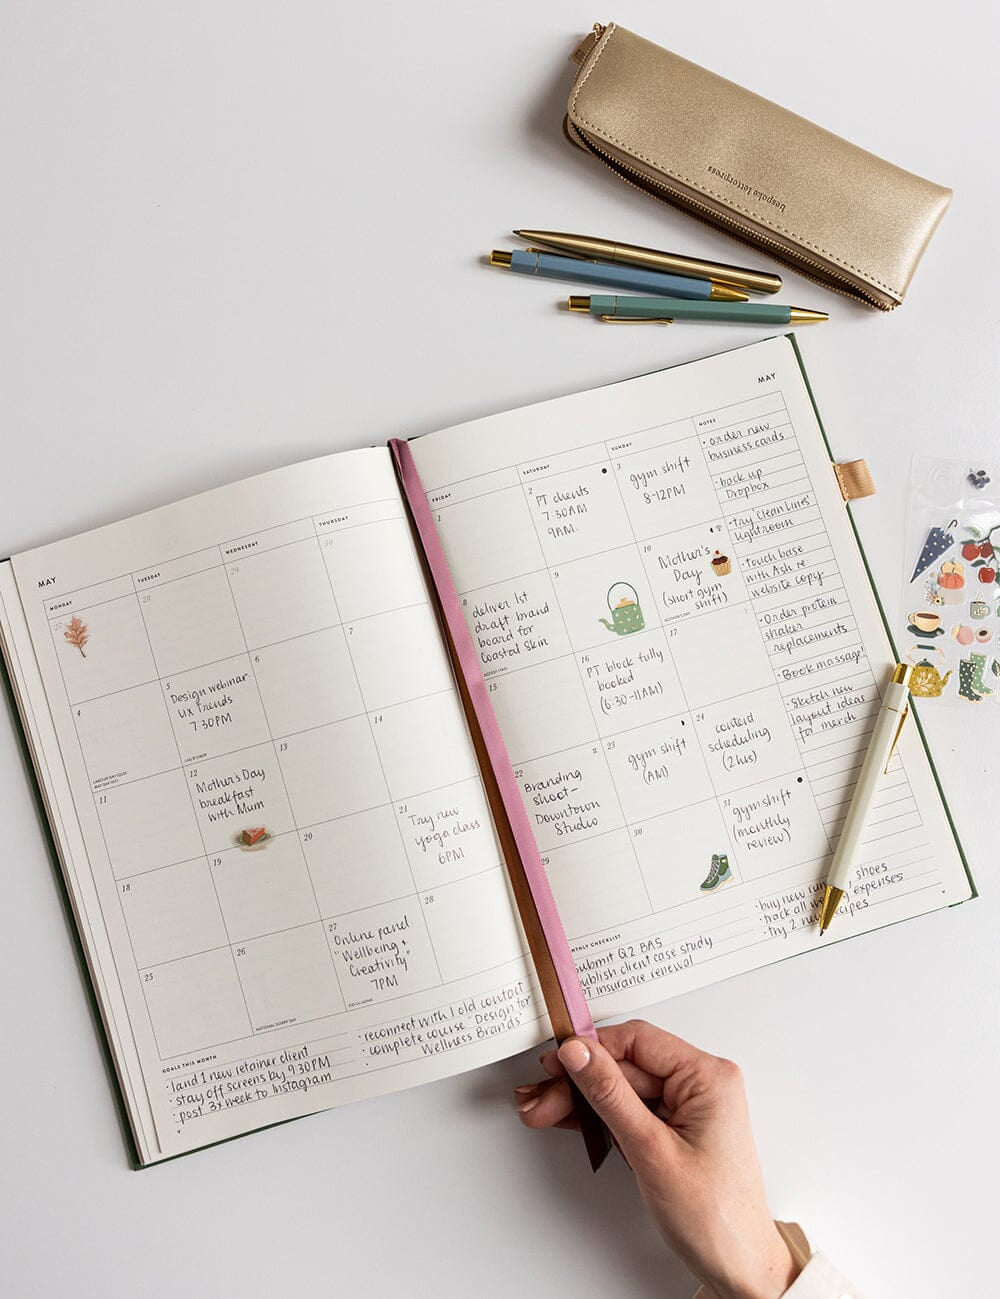 bespoke letterpress
MAY
MONDAY
TUESDAY
WEDNESDAY
THURSDAY
27
28
29
30
4
5
Design webinar
UX Trends
7:30PM
6
7
LABOUR DAY (QLD)
MAY DAY (NT)
11
12
Mother's Day
breakfast
with Mum
13
14
18
19
20
21
Try new
yoga class
6PM
25
26
NATIONAL SORRY DAY
27
Online panel
"Wellbeing +
Creativity"
7PM
EID UL-ADHA
28
GOALS THIS MONTH
• land 1 new retainer client
• stay off screens by 9:30PM
• post 3x week to Instagram
• reconnect with 1 old contact
• complete course "Design for
Wellness Brands"
•
MAY
FRIDAY
SATURDAY
SUNDAY
NOTES
1
2
PT clients
7:30AM
9AM.
3
gym shift
8-12PM
8
deliver 1st
draft brand
board for
Coastal Skin
9
10
Mother's
Day
(short gym
shift)
MOTHER'S DAY
15
16
PT block fully
booked
(6:30-11AM)
17
22
Branding
shoot-
Downtown
Studio
23
gym shift
(AM)
24
content
scheduling
(2hrs)
29
30
31
gym shift
(monthly
review)
• order new
business cards
• back up
Dropbox
• try 'clean lines'
lightroom
• touch base
with Ash re
website copy
• Order protein
shaker
replacements
• Book massage!
• Sketch new
layout ideas
for merch
NTHLY CHECKLIST
Submit Q2 BAS
publish client case study
PT insurance renewal
• buy new run shoes
• track all expenses
• Try 2 new recipes